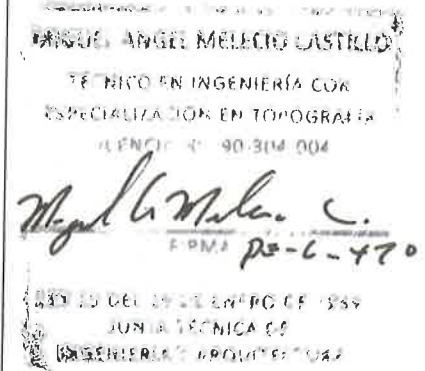 MIGUEL ANGEL MELECIO CASTILLO
TÉCNICO EN INGENIERÍA CON
ESPECIALIZACION EN TOPOGRAFIA
LICENCIA N° 90-304-004
Miguel A Melecio C.
FIRMA PE-6-470
LEY 15 DEL 26 DE ENERO DE 1959
JUNTA TÉCNICA DE
INGENIERIA Y ARQUITECTURA